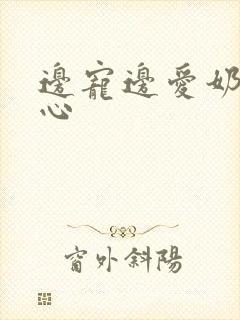 邊寵邊愛奶
心
窗外斜陽